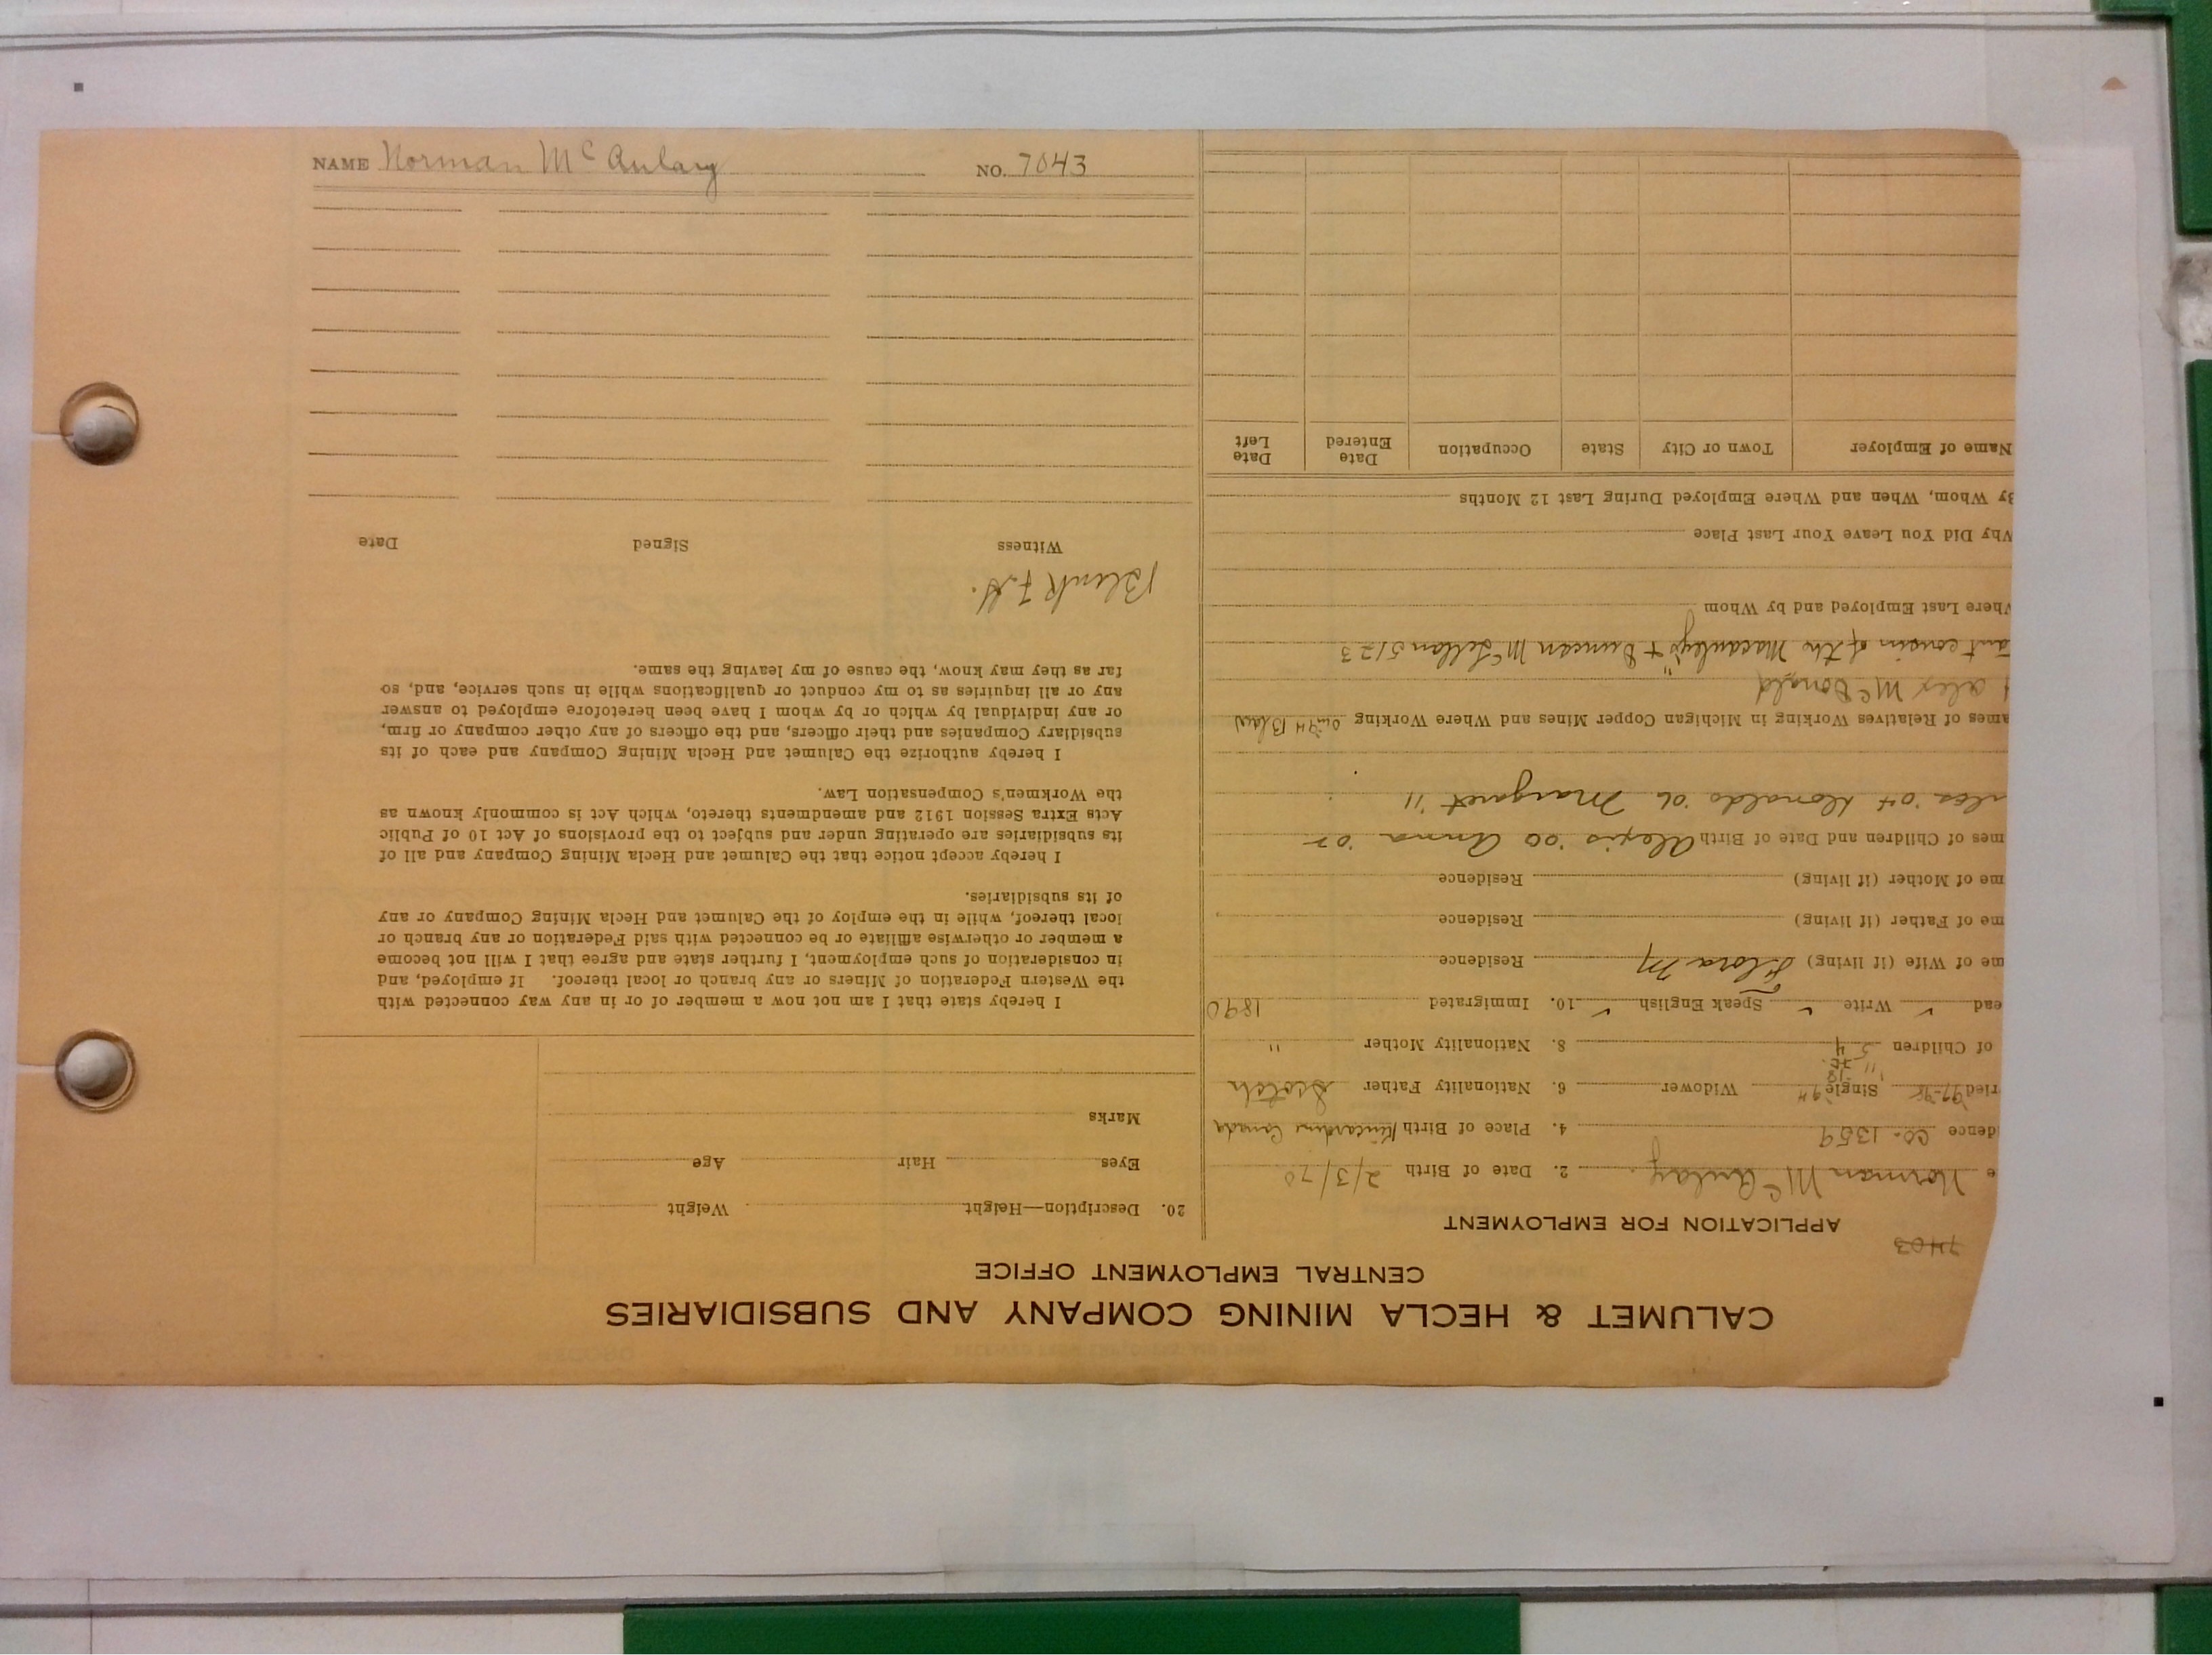 NAME Norman McAulay NO. 7043
CALUMET & HECLA MINING COMPANY AND SUBSIDIARIES
CENTRAL EMPLOYMENT OFFICE
7403
APPLICATION FOR EMPLOYMENT
e Norman McAulay. 2. Date of Birth 2/3/70
dence Co. 1359 4. Place of Birth Kincardine Canada
ried Single Widower 6. Nationality Father Scotch
of Children 5 4 8. Nationality Mother "
ead ✓ Write ✓ Speak English ✓ 10. Immigrated 1890
me of Wife (if living) Flora M Residence
me of Father (if living) Residence
me of Mother (if living) Residence
mes of Children and Date of Birth Alexis '00 Anna '02
'04 Donalda '06 Margaret '11
ames of Relatives Working in Michigan Copper Mines and Where Working
Alex McDonald
cousin of the Macauley's + Duncan McLellan 5123
Where Last Employed and by Whom
Why Did You Leave Your Last Place
By Whom, When and Where Employed During Last 12 Months
Name of Employer Town or City State Occupation Date Entered Date Left
20. Description—Height Weight
Eyes Hair Age
Marks
I hereby state that I am not now a member of or in any way connected with
the Western Federation of Miners or any branch or local thereof. If employed, and
in consideration of such employment, I further state and agree that I will not become
a member or otherwise affiliate or be connected with said Federation or any branch or
local thereof, while in the employ of the Calumet and Hecla Mining Company or any
of its subsidiaries.
I hereby accept notice that the Calumet and Hecla Mining Company and all of
its subsidiaries are operating under and subject to the provisions of Act 10 of Public
Acts Extra Session 1912 and amendments thereto, which Act is commonly known as
the Workmen's Compensation Law.
I hereby authorize the Calumet and Hecla Mining Company and each of its
subsidiary Companies and their officers, and the officers of any other company or firm,
or any individual by which or by whom I have been heretofore employed to answer
any or all inquiries as to my conduct or qualifications while in such service, and, so
far as they may know, the cause of my leaving the same.
Witness Signed Date